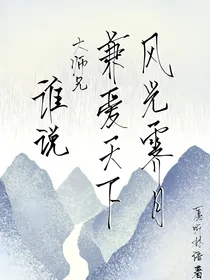 谁说
大师兄
兼爱天下
风光霁月
听林
著